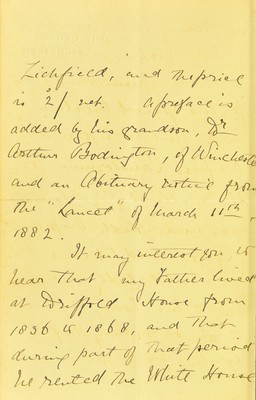 Lichfield, and the price
is 2/ net. A preface is
added by his grandson, Dr
Arthur Bodington, of Wincheste
and an Obituary notice from
the "Lancet" of March 11th,
1882.
It may interest you, to
hear that my Father lived
at Driffold House from
1836 to 1868, and that
during part of that period
he rented the White House